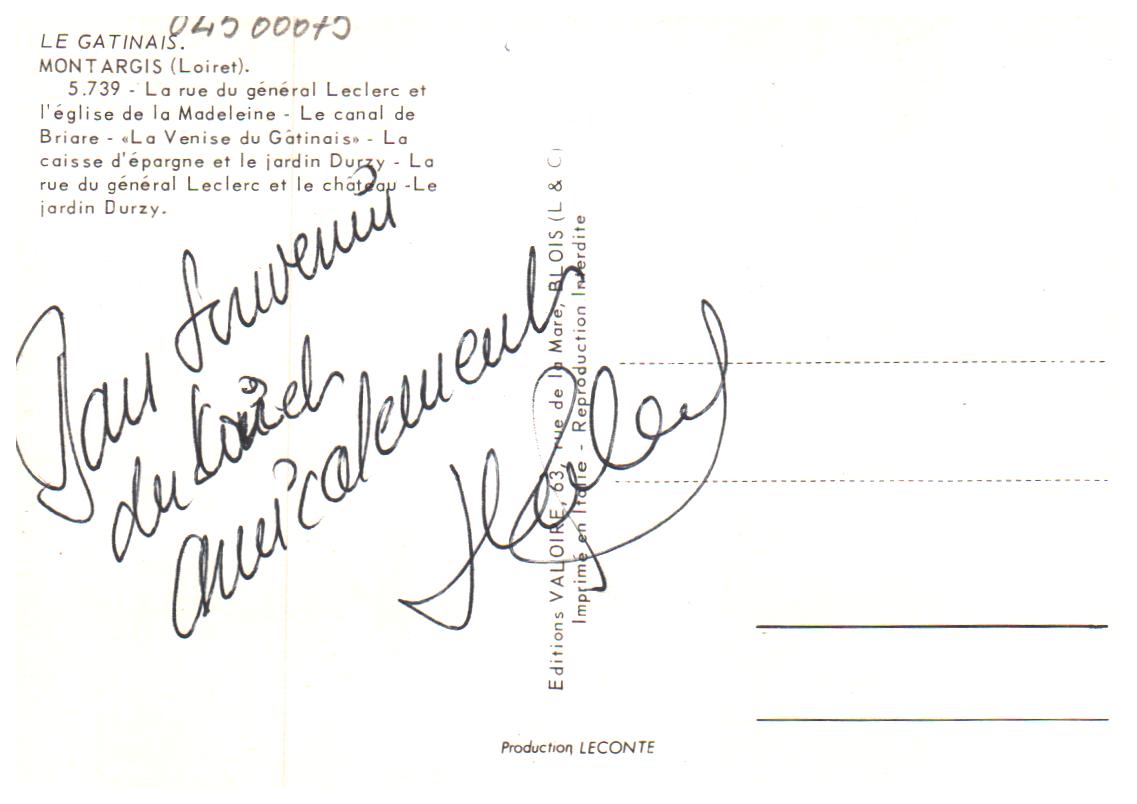 04500075
LE GATINAIS.
MONTARGIS (Loiret).
5.739 - La rue du général Leclerc et
l'église de la Madeleine - Le canal de
Briare - «La Venise du Gâtinais» - La
caisse d'épargne et le jardin Durzy - La
rue du général Leclerc et le château -Le
jardin Durzy.
Bon souvenir
du Loiret
amicalement
Editions VALOIRE, 63, rue de la Mare, BLOIS (L & C)
Imprimé en Italie - Reproduction Interdite
Production LECONTE